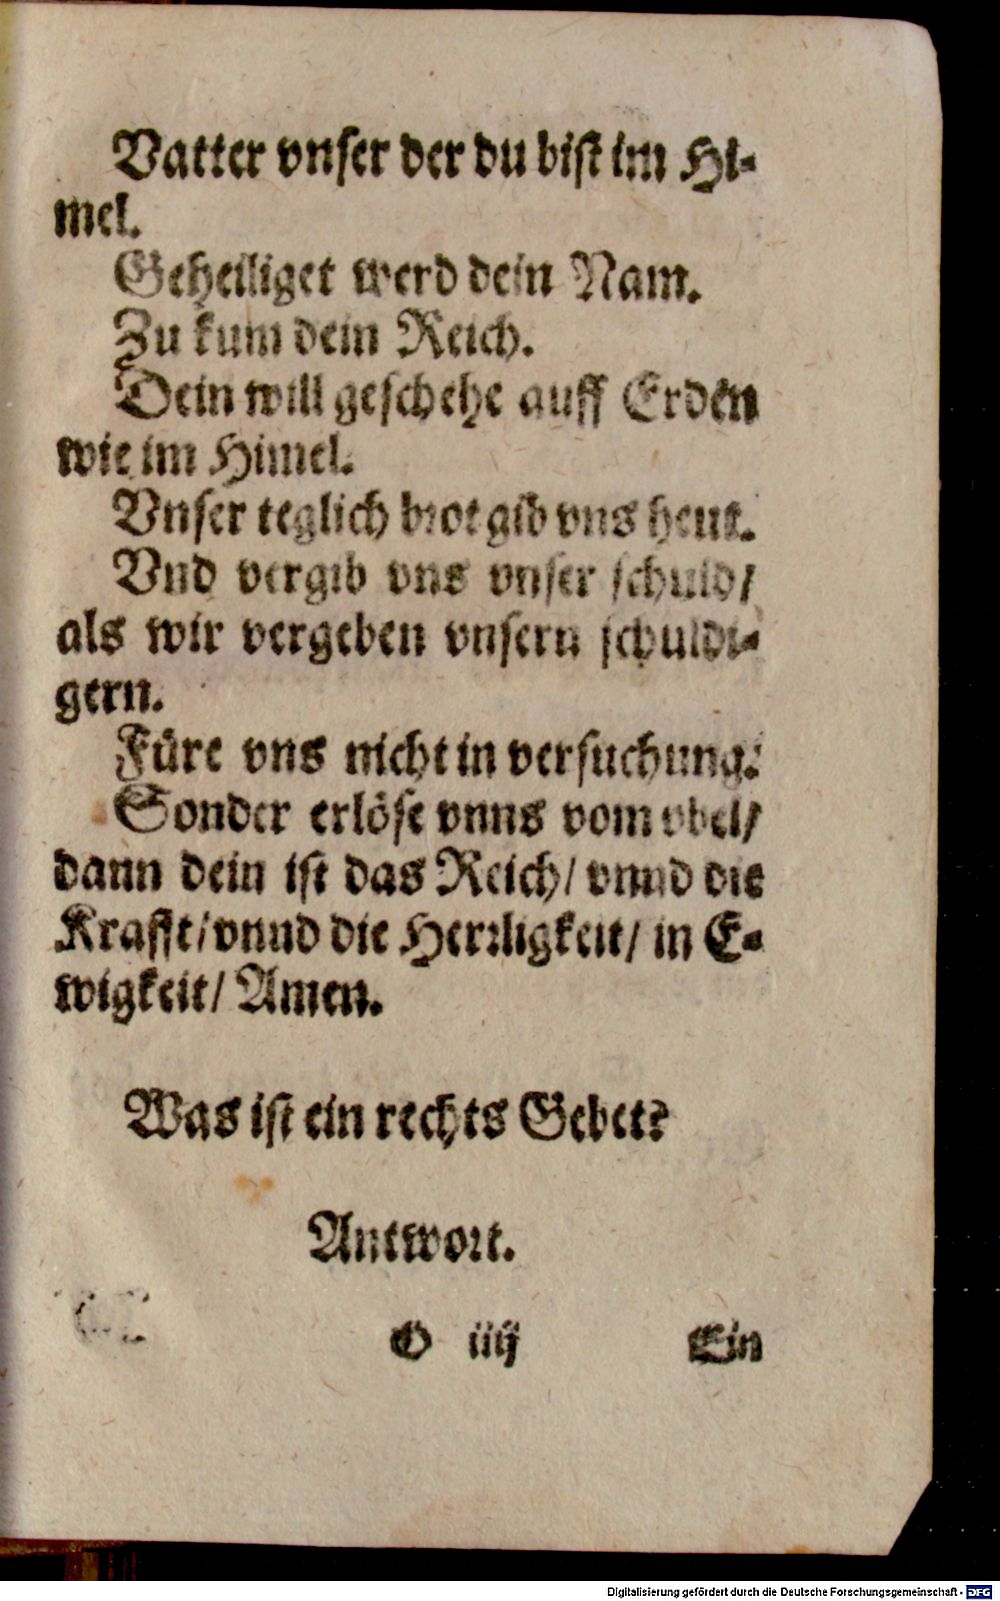 Vatter vnser der du bist im Hi-
mel.
Geheiliget werd dein Nam.
Zu kum dein Reich.
Dein will geschehe auff Erden
wie im Himel.
Vnser teglich brot gib vns heut.
Vnd vergib vns vnser schuld/
als wir vergeben vnsern schuldi-
gern.
Füre vns nicht in versuchung.
Sonder erlöse vnns vom vbel/
dann dein ist das Reich/ vnnd die
Krafft/ vnnd die Herrligkeit/ in E-
wigkeit/ Amen.
Was ist ein rechts Gebet?
Antwort.
O iiij Ein
Digitalisierung gefördert durch die Deutsche Forschungsgemeinschaft - DFG